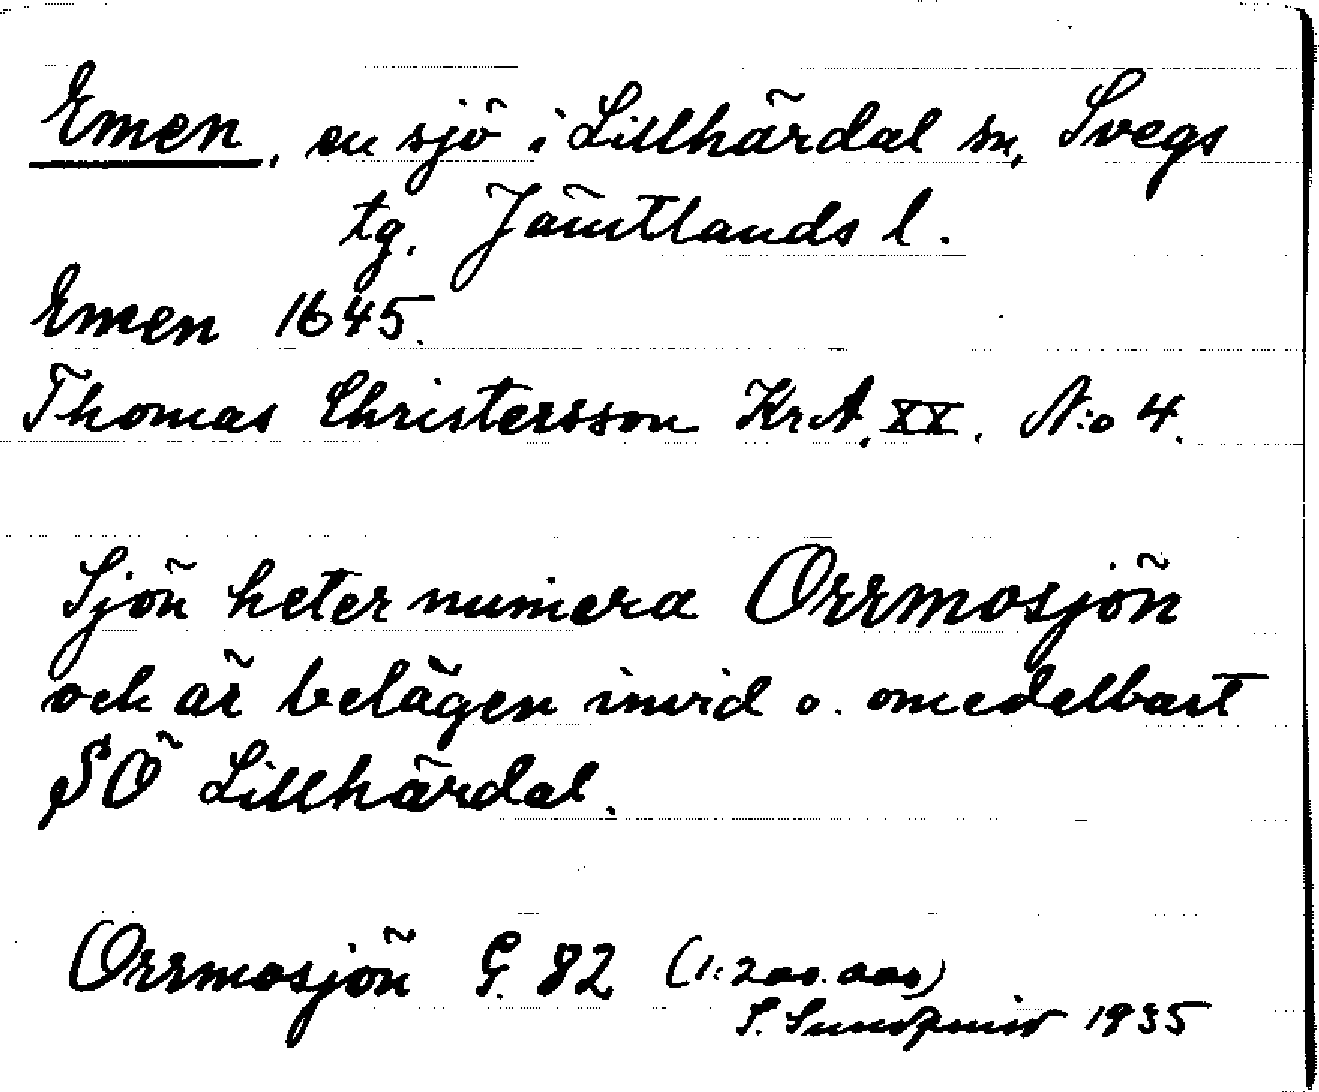 Emen, en sjö i Lillhärdal sn, Svegs
tg. Jämtlands l.
Emen 1645.
Thomas Christersson Kr.A. XX. N:o 4.
Sjön heter numera Orrmosjön
och är belägen invid o. omedelbart
SÖ Lillhärdal.
Orrmosjön G. 82 (1:200.000)
S. Sundqvist 1935